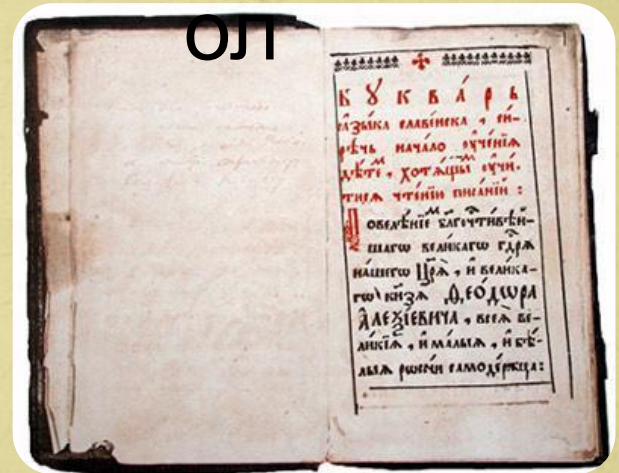 ол
БУКВА́РЬ
ꙗ҆зы́ка славе́нска, си-
рѣчь нача́ло ᲂу҆че́нїѧ
дѣ́теⷨ, хотѧ́щыⷨ ᲂу҆чи́-
тисѧ чте́нїю писа́нїй :
Повелѣ́нїеⷨ бл҃гочⷭ҇тивѣ́й-
шагѡ вели́кагѡ гдⷭ҇рѧ
на́шегѡ Цр҃ѧ̀, и҆ вели́ка-
гѡ кн҃зѧ Ѳео́дѡра
А҆леѯі́евича, всеѧ̀ ве-
ли́кїѧ, и҆ ма́лыѧ, и҆ бѣ́-
лыѧ рѡссі́и самоде́ржца :